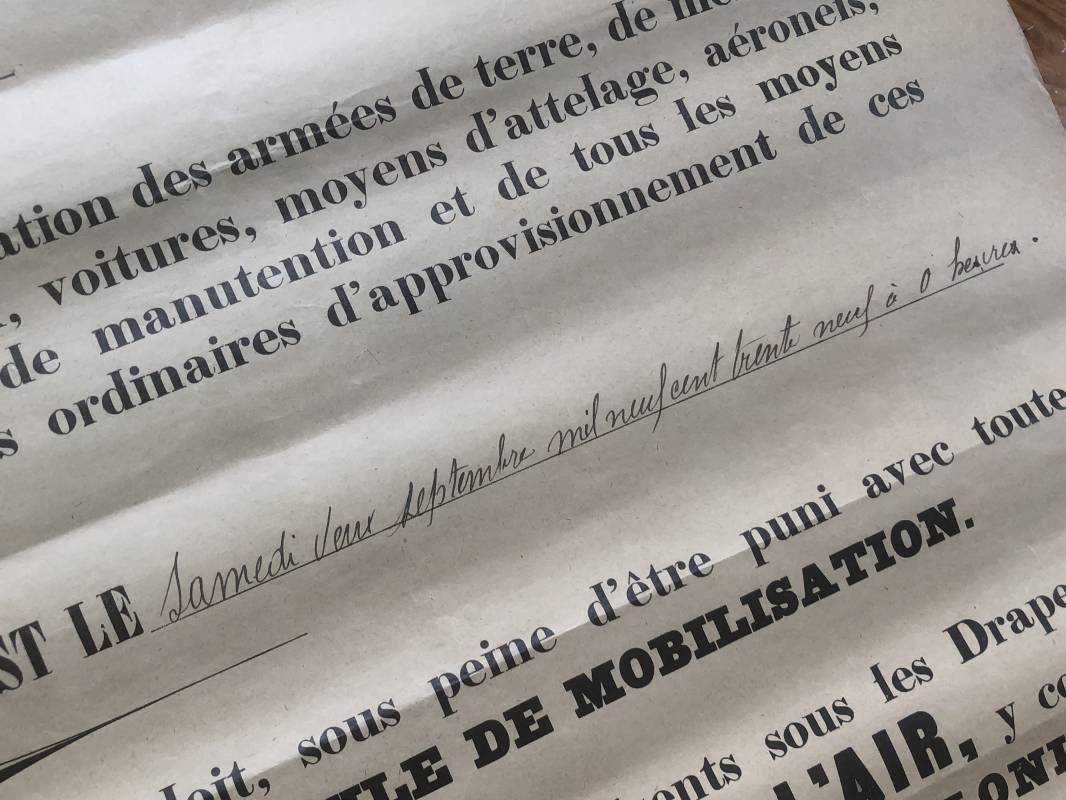 ation des armées de terre, de
voitures, moyens d'attelage, aéronefs,
de manutention et de tous les moyens
s ordinaires d'approvisionnement de ces
ST LE Samedi deux septembre mil neuf cent trente neuf à 0 heures.
doit, sous peine d'être puni avec toute
ULE DE MOBILISATION.
ents sous les Drape
L'AIR, y co